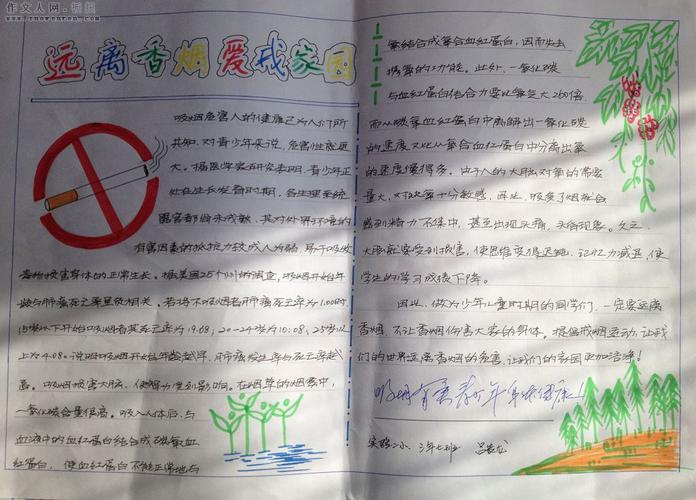 作文人网·祈起
www.zuowenren.com
远离香烟爱我家园
吸烟危害人的健康已为人们所
共知,对青少年来说,危害性就更
大。据医学家研究表明,青少年正
处在生长发育时期,各生理系统、
器官都尚未成熟,其对外界环境的
有害因素的抵抗力较成人为弱,易于吸收
毒物损害身体的正常生长。据美国25个州的调查,吸烟开始年
龄与肺癌死亡率呈负相关。若将不吸烟者肺癌死亡率为1.00时,
15岁以下开始吸烟者其死亡率为19.08,20-24岁为10.08,25岁以
上为4.08。说明吸烟开始年龄越早,肺癌发生率与死亡率越
高。吸烟损害大脑,使智力受到影响。在烟草的烟雾中,
一氧化碳含量很高。吸入人体后,与
血液中的血红蛋白结合成碳氧血
红蛋白,使血红蛋白不能正常地与
氧结合成氧合血红蛋白,因而失去
携氧的功能。此外,一氧化碳
与血红蛋白结合力要比氧气大260倍
而从碳氧血红蛋白中离解出一氧化碳
的速度又比从氧合血红蛋白中分离出氧
的速度慢得多。由于人的大脑对氧的需要
量大,对缺氧十分敏感,因此,吸多了烟就会
感到精力不集中,甚至出现头痛、头昏现象。久之,
大脑就要受到损害,使思维变得迟钝,记忆力减退,使
学生的学习成绩下降。
因此,做为少年儿童时期的同学们,一定要远离
香烟,不让香烟伤害大家的身体。提倡戒烟运动,让我
们的世界远离香烟的危害,让我们的家园更加洁净!
吸烟有害青少年身体健康!
实验二小 三年七班 吕